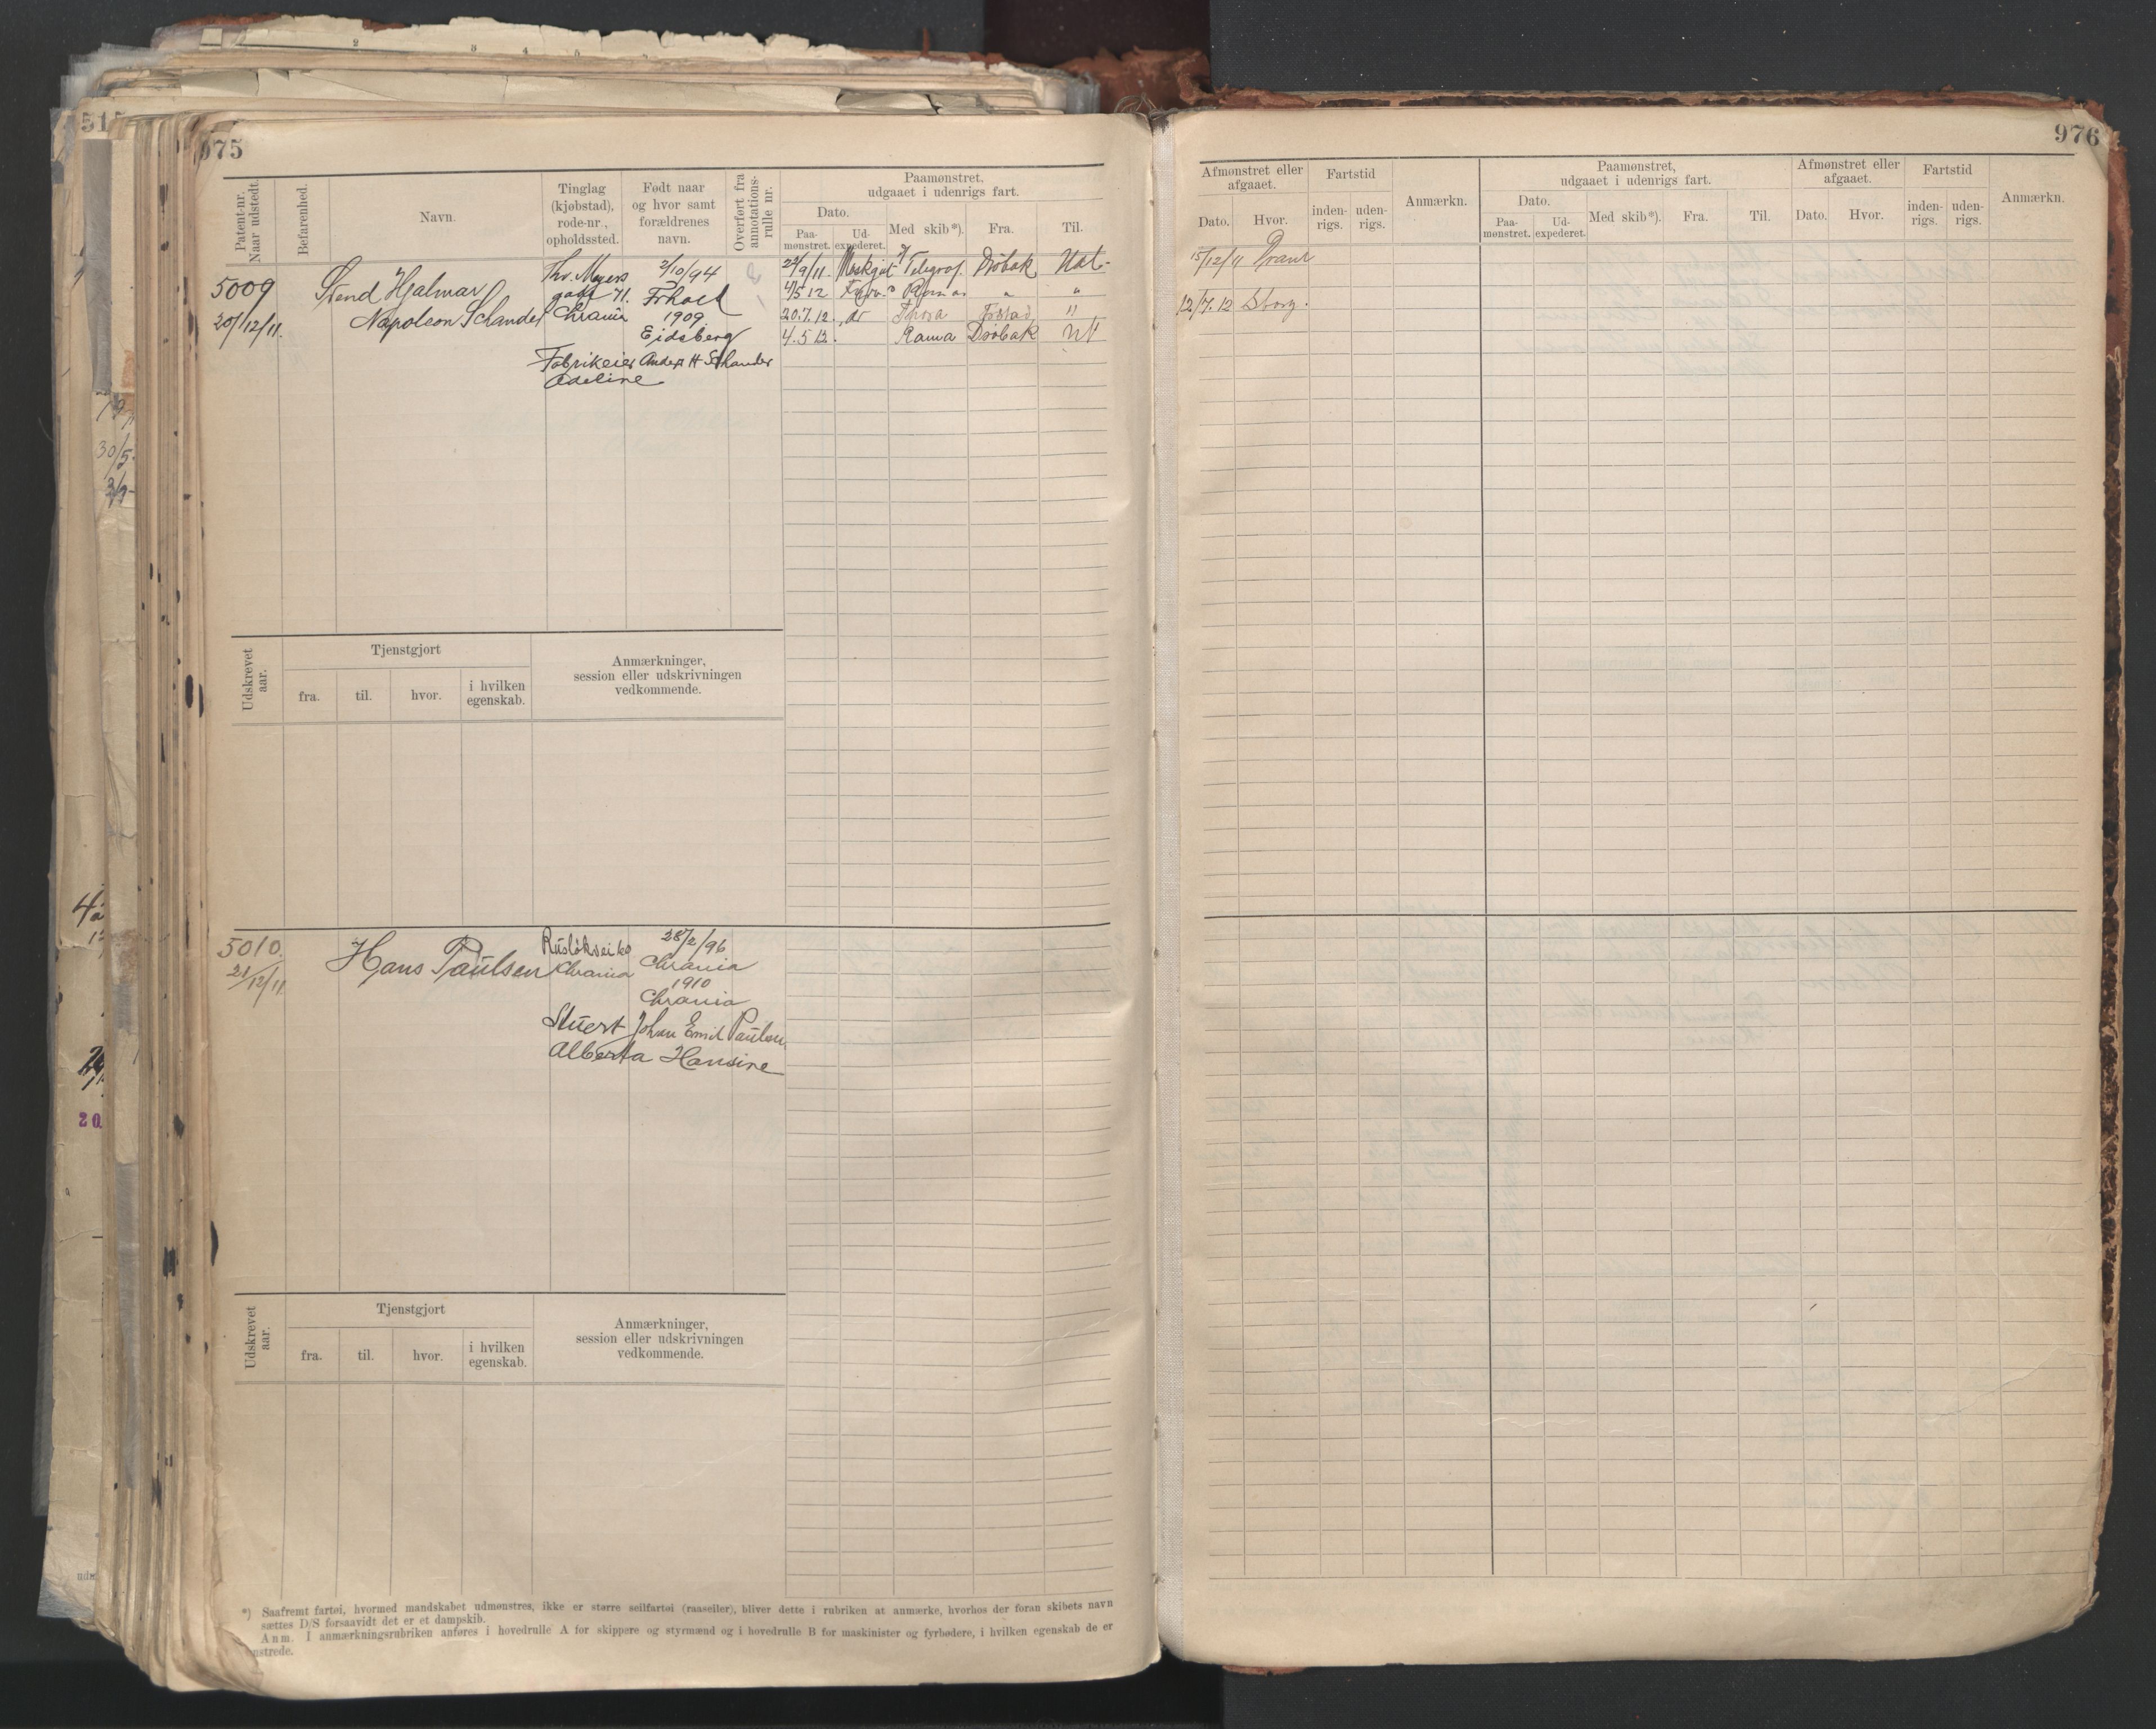 975
Patent-nr.
Naar udstedt.
Befarenhed.
Navn.
Tinglag
(kjøbstad),
rode-nr.,
opholdssted.
Født naar
og hvor samt
forældrenes
navn.
Overført fra
annotations-
rulle nr.
Paamønstret,
udgaaet i udenrigs fart.
Dato.
Paa-
mønstret.
Ud-
expederet.
Med skib*).
Fra.
Til.
5009
20/12/11.
Svend Hjalmar
Napoleon Schander
Thv. Meyers
gade 71.
Chrania
2/10/94
1909
Eidsberg
Fabrikeier Anders H Schander
Adeline
22/9/11. Telegraf. Drøbak
4/5 12 " "
20.7.12. Thora "
4.5 12. Rama Drøbak
Udskrevet
aar.
Tjenstgjort
fra.
til.
hvor.
i hvilken
egenskab.
Anmærkninger,
session eller udskrivningen
vedkommende.
5010.
21/12/11
Hans Paulsen
Chrania
28/2/96
Chrania
1910
Chrania
Stuert Johan Emil Paulsen
Alberta Hansine
Udskrevet
aar.
Tjenstgjort
fra.
til.
hvor.
i hvilken
egenskab.
Anmærkninger,
session eller udskrivningen
vedkommende.
*) Saafremt fartøi, hvormed mandskabet udmønstres, ikke er større seilfartøi (raaseiler), bliver dette i rubriken at anmærke, hvorhos der foran skibets navn
sættes D/S forsaavidt det er et dampskib.
Anm. I anmærkningsrubriken anføres i hovedrulle A for skippere og styrmænd og i hovedrulle B for maskinister og fyrbødere, i hvilken egenskab de er
nstrede.
976
Afmønstret eller
afgaaet.
Dato.
Hvor.
Fartstid
inden-
rigs.
uden-
rigs.
Anmærkn.
Paamønstret,
udgaaet i udenrigs fart.
Dato.
Paa-
mønstret.
Ud-
expederet.
Med skib*).
Fra.
Til.
Afmønstret eller
afgaaet.
Dato.
Hvor.
Fartstid
inden-
rigs.
uden-
rigs.
Anmærkn.
15/12/11
12/7.12